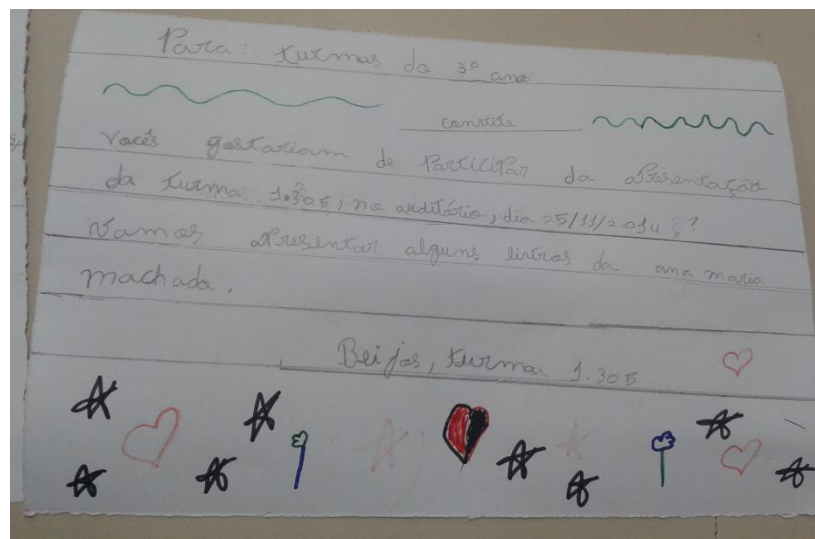 Para: turmas do 3º ano
convite
vocês gostariam de participar da apresentação
da turma 1.305, no auditório, dia 25/11/2014 ?
Vamos apresentar alguns livros da ana maria
machado.
Beijos, turma 1.305